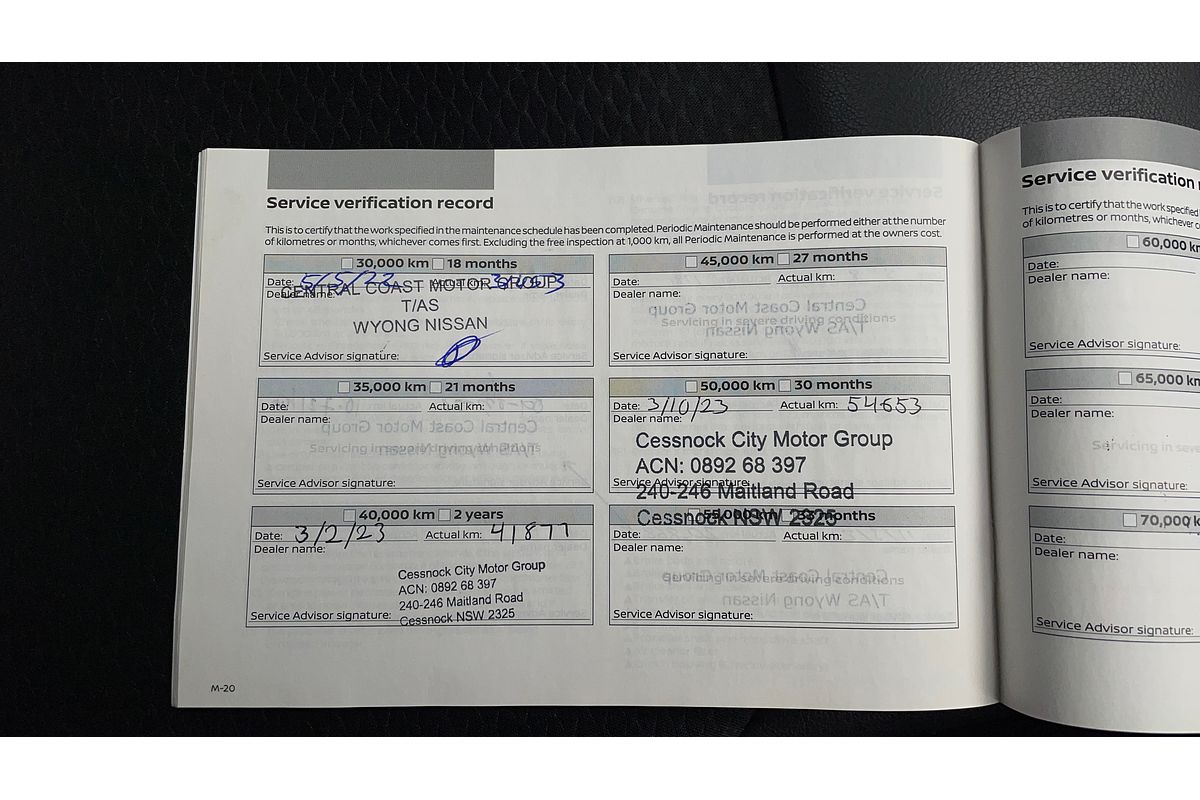 Service verification record
This is to certify that the work specified in the maintenance schedule has been completed. Periodic Maintenance should be performed either at the number
of kilometres or months, whichever comes first. Excluding the free inspection at 1,000 km, all Periodic Maintenance is performed at the owners cost.
30,000 km 18 months
Date: Actual km:
Dealer name:
CENTRAL COAST MOTOR GROUP
T/AS
WYONG NISSAN
Service Advisor signature:
35,000 km 21 months
Date: Actual km:
Dealer name:
Servicing in severe driving conditions
Service Advisor signature:
40,000 km 2 years
Date: 3/2/23 Actual km: 41877
Dealer name:
Cessnock City Motor Group
ACN: 0892 68 397
240-246 Maitland Road
Cessnock NSW 2325
Service Advisor signature:
M-20
45,000 km 27 months
Date: Actual km:
Dealer name:
Servicing in severe driving conditions
Service Advisor signature:
50,000 km 30 months
Date: 3/10/23 Actual km: 54653
Dealer name:
Cessnock City Motor Group
ACN: 0892 68 397
Service Advisor signature:
240-246 Maitland Road
Cessnock NSW 2325
55,000 km 33 months
Date: Actual km:
Dealer name:
Servicing in severe driving conditions
Service Advisor signature:
Service verification
This is to certify that the work specified
of kilometres or months, whichever
60,000 km
Date:
Dealer name:
Service Advisor signature:
65,000 km
Date:
Dealer name:
Servicing in
Service Advisor signature:
70,000
Date:
Dealer name:
Service Advisor signature: